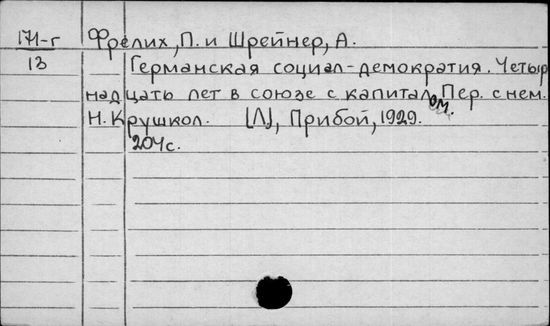 171-г Фрелих, П. и Шрейнер, А.
13 Германская социал-демократия. Четыр
надцать лет в союзе с капиталом. Пер. с нем.
Н. Крушкол. [Л], Прибой, 1929.
204с.